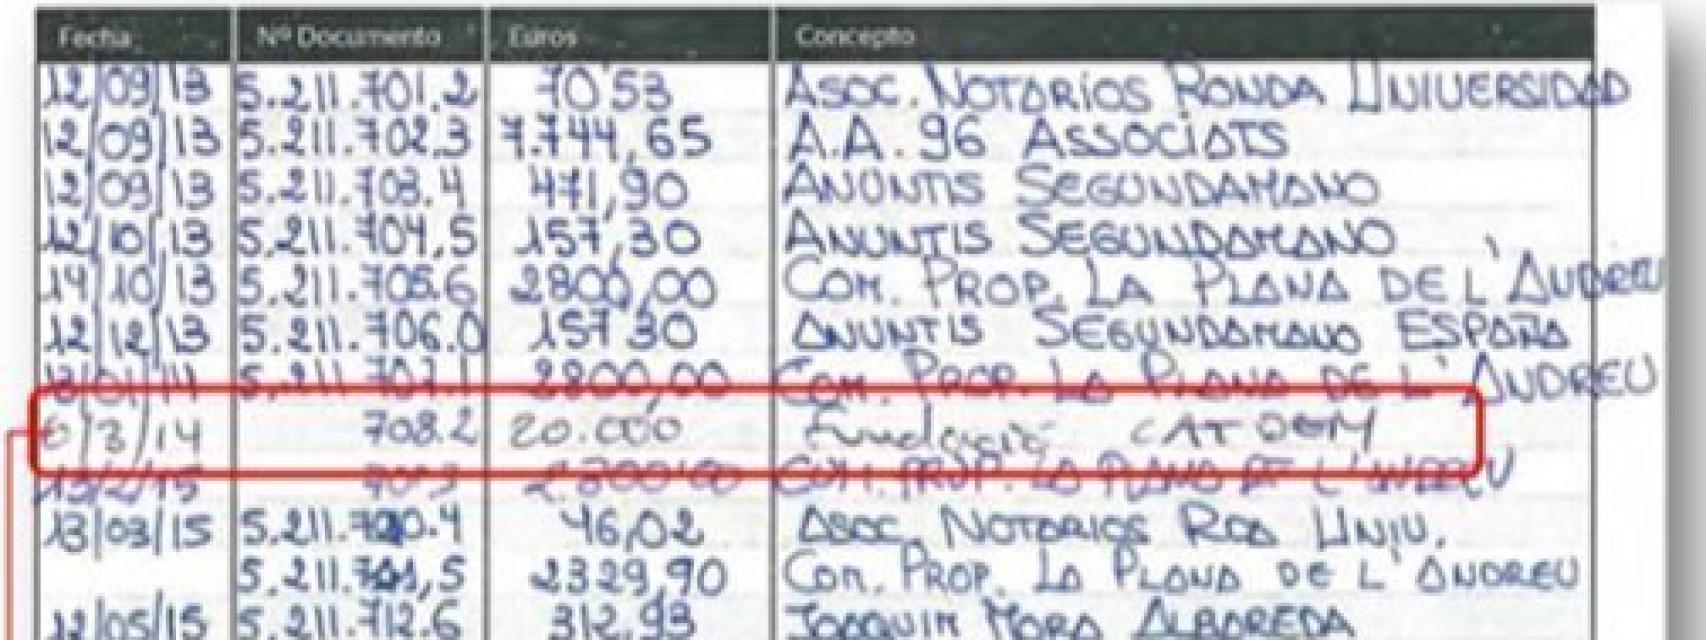 Fecha Nº Documento Euros Concepto
12/09/13 5.211.701.2 70'53 ASOC. NOTARIOS RONDA UNIVERSIDAD
12/09/13 5.211.702.3 7.744,65 A.A. 96 ASSOCIATS
12/09/13 5.211.703.4 471,90 ANUNTIS SEGUNDAMANO
12/10/13 5.211.704,5 157,30 ANUNTIS SEGUNDAMANO
14/10/13 5.211.705.6 2800,00 COM. PROP. LA PLANA DE L'ANDREU
12/12/13 5.211.706.0 157'30 ANUNTIS SEGUNDAMANO ESPAÑA
13/01/14 5.211.707.1 2800,00 COM. PROP. LA PLANA DE L'ANDREU
6/3/14 708.2 20.000 Fundació CATDEM
13/2/15 709.3 COM. PROP. LA PLANA DE L'ANDREU
13/03/15 46,02 ASOC. NOTARIOS RDA UNIV.
2329,90 COM. PROP. LA PLANA DE L'ANDREU
12/05/15 5.211.712.6 312,93 JOAQUIM MORA ALBAREDA